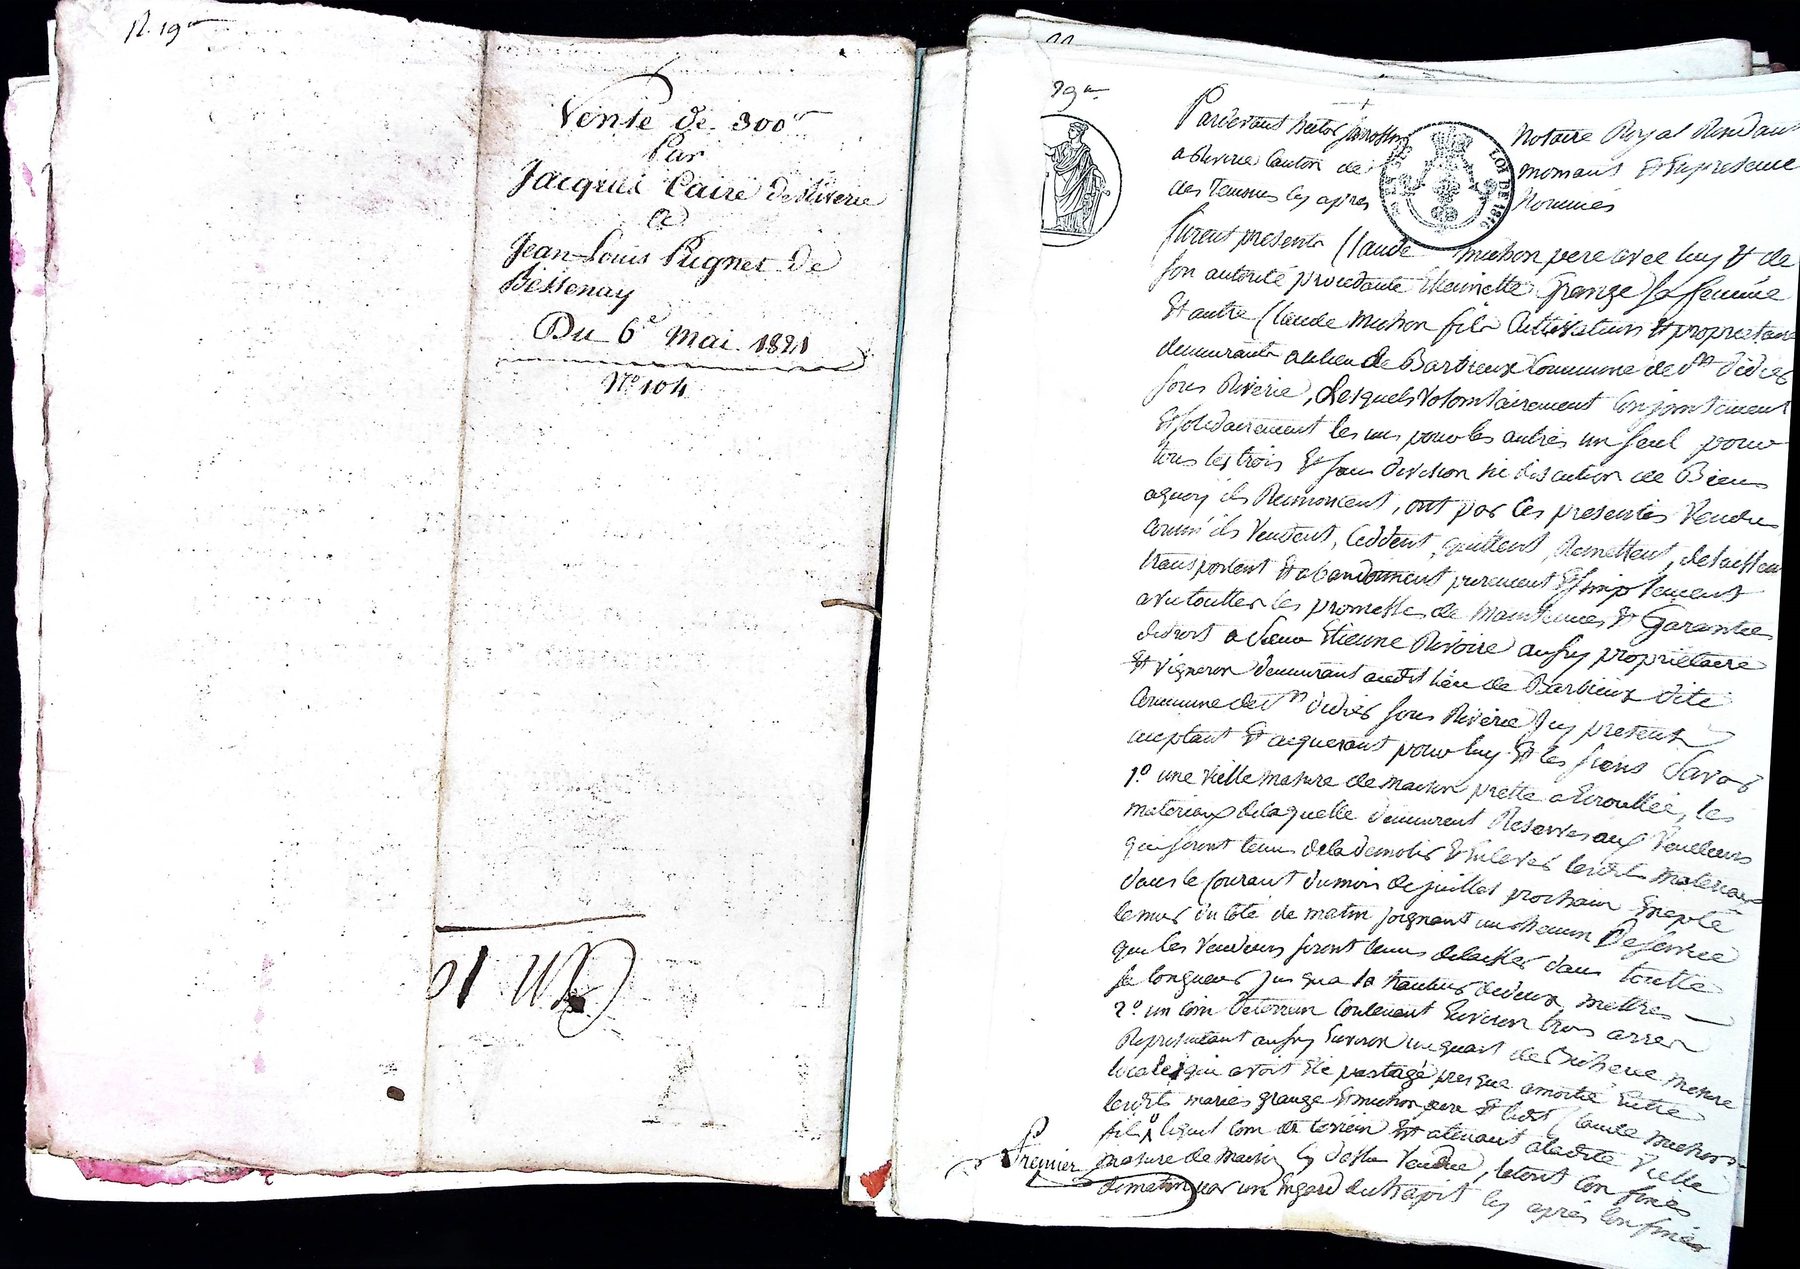 R. 19
Vente de 300
Par
Jacques Caire de Riverie
a
Jean Louis Pugnet de
Bessenay
Du 6e Mai 1821
No 104
Pardevant hector notaire Royal Residant
a Riverie Canton de mornant Et En presence
des temoins cy apres Nommés
furent presents Claude muchon pere avec luy Et de
son autorité procedante Grange sa femme
Et autre Claude muchon fils Cultivateurs Et proprietaires
demeurants au lieu de Barbieux Commune de st didier
sous Riverie, Lesquels volontairement Conjointement
Et solidairement les uns pour les autres un seul pour
tous les trois Et sans division ni discution de Biens
aquoy ils Renoncent, ont par Ces presentes Vendu
comm'ils Vendent, Ceddent, quittent, Remettent, delaissent
transportent Et abandonnent purement Et simplement
avec touttes les promesses de maintenue Et Garantie
de droit a sieur Etienne Rivoire ausy proprietaire
Et vigneron demeurant audit lieu de Barbieux dite
Commune de st didier sous Riverie Icy present
acceptant Et acquerant pour luy Et les siens Savoir
1o une vielle masure de maison prette a Ecroullée, les
materiaux de laquelle demeurent Reservés aux Vendeurs
qui seront tenus de la demolir Et Enlever lesdits materiaux
dans le Courant du mois de juillet prochain Excepté
le mur du coté de matin joignant un chemin De service
que les Vendeurs seront tenus de laisser dans toutte
sa longueur jusqua la hauteur de deux mettres
2o un coin de terrein Contenant Environ trois arres
Representant ausy Environ un quart de Bicherée mesure
locale qui avoit Eté partagé presque amoitié Entre
lesdits mariés grange Et muchon pere Et ledit Claude muchon
fils lequel Coin de terrein Est atenant aladite Vielle
masure de maison Cy dessus Vendue, letout Confiné
de matin par un Engard du trapit Cy après Confiné
Premier